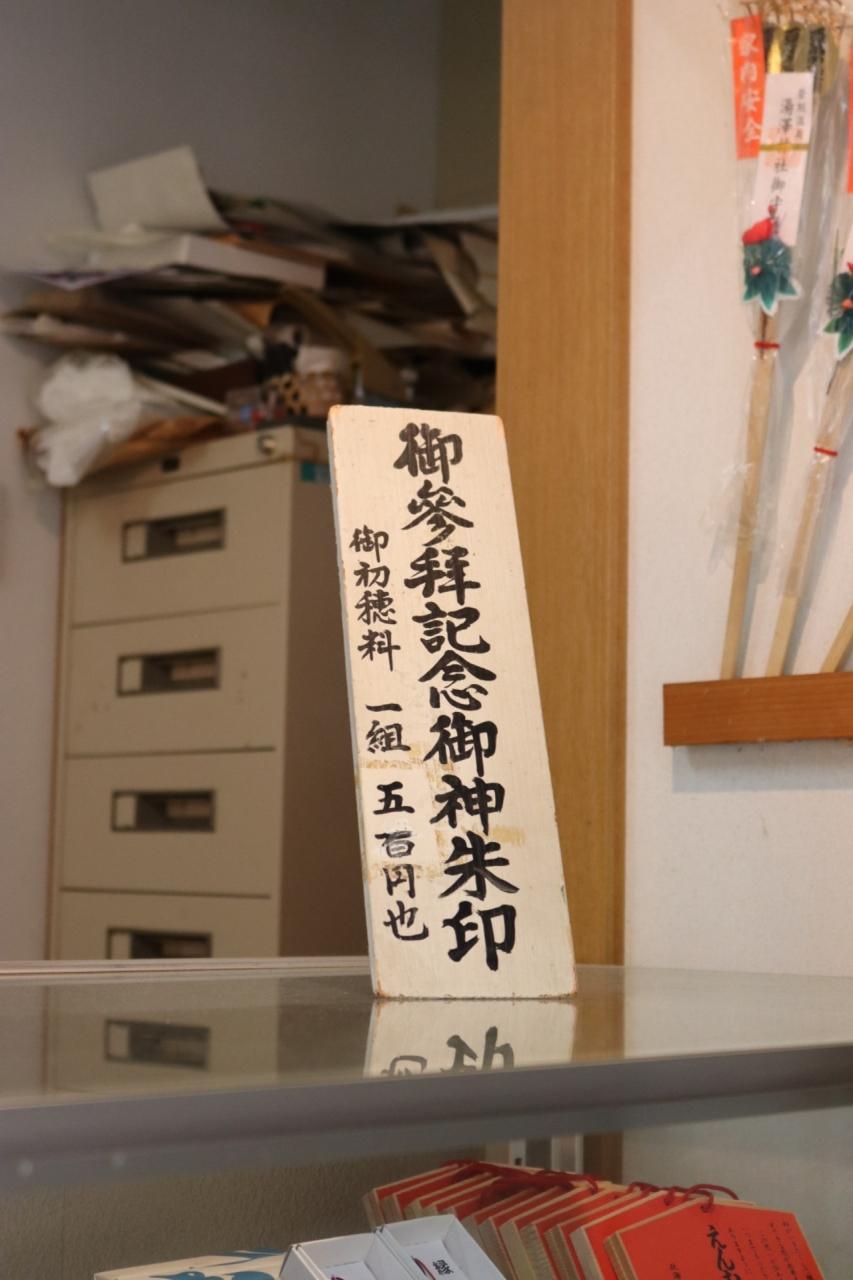 御參拜記念御神朱印
御初穂料 一組 五百円也
家内安全
えん